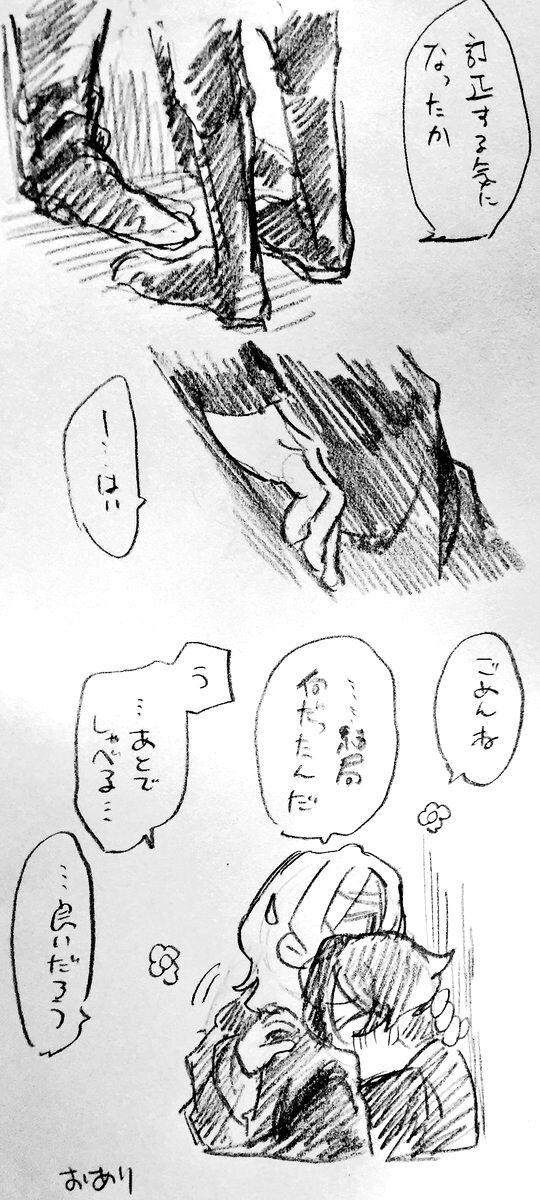 訂正する気に
なったか
…はい
ごめんね
……結局
何だったんだ
う
…あとで
しゃべる…
…良いだろう
おわり